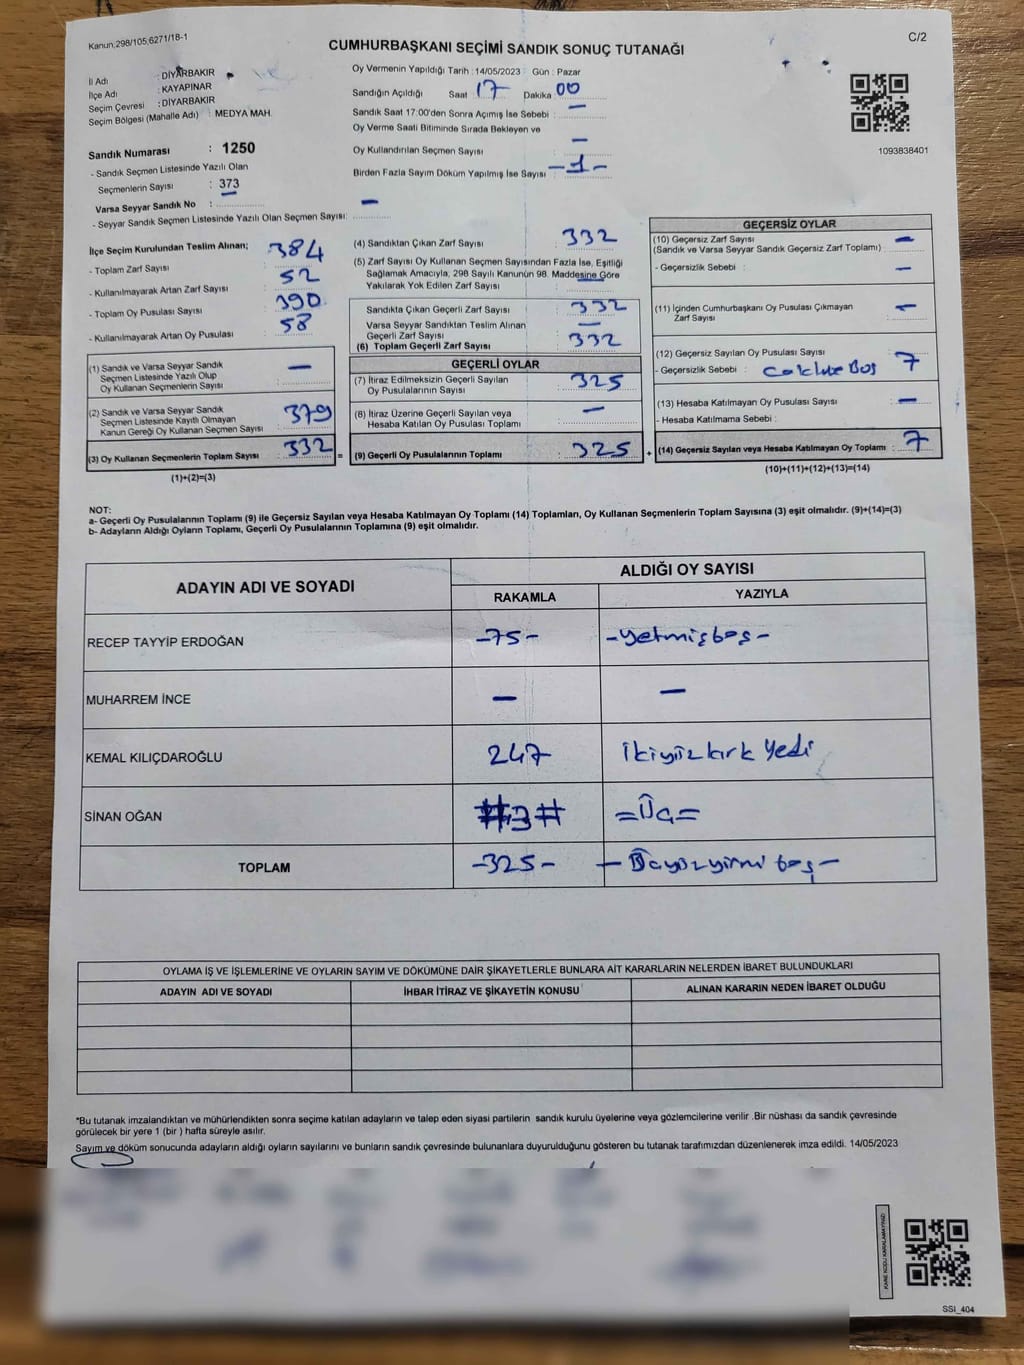 Kanun;298/105;6271/18-1
C/2
CUMHURBAŞKANI SEÇİMİ SANDIK SONUÇ TUTANAĞI
İl Adı : DİYARBAKIR
İlçe Adı : KAYAPINAR
Seçim Çevresi : DİYARBAKIR
Seçim Bölgesi (Mahalle Adı) : MEDYA MAH.
Sandık Numarası : 1250
- Sandık Seçmen Listesinde Yazılı Olan
Seçmenlerin Sayısı : 373
Varsa Seyyar Sandık No : —
- Seyyar Sandık Seçmen Listesinde Yazılı Olan Seçmen Sayısı:
Oy Vermenin Yapıldığı Tarih : 14/05/2023 Gün : Pazar
Sandığın Açıldığı Saat 17 Dakika 00
Sandık Saat 17:00'den Sonra Açımış İse Sebebi : —
Oy Verme Saati Bitiminde Sırada Bekleyen ve
Oy Kullandırılan Seçmen Sayısı —
Birden Fazla Sayım Döküm Yapılmış İse Sayısı —1—
1093838401
İlçe Seçim Kurulundan Teslim Alınan;
- Toplam Zarf Sayısı : 384
- Kullanılmayarak Artan Zarf Sayısı : 52
- Toplam Oy Pusulası Sayısı : 390
- Kullanılmayarak Artan Oy Pusulası : 58
(1) Sandık ve Varsa Seyyar Sandık
Seçmen Listesinde Yazılı Olup
Oy Kullanan Seçmenlerin Sayısı : —
(2) Sandık ve Varsa Seyyar Sandık
Seçmen Listesinde Kayıtlı Olmayan
Kanun Gereği Oy Kullanan Seçmen Sayısı : 379
(3) Oy Kullanan Seçmenlerin Toplam Sayısı : 332
(1)+(2)=(3)
(4) Sandıktan Çıkan Zarf Sayısı : 332
(5) Zarf Sayısı Oy Kullanan Seçmen Sayısından Fazla İse, Eşitliği
Sağlamak Amacıyla, 298 Sayılı Kanunun 98. Maddesine Göre
Yakılarak Yok Edilen Zarf Sayısı : —
Sandıkta Çıkan Geçerli Zarf Sayısı : 332
Varsa Seyyar Sandıktan Teslim Alınan
Geçerli Zarf Sayısı : —
(6) Toplam Geçerli Zarf Sayısı : 332
GEÇERLİ OYLAR
(7) İtiraz Edilmeksizin Geçerli Sayılan
Oy Pusulalarının Sayısı : 325
(8) İtiraz Üzerine Geçerli Sayılan veya
Hesaba Katılan Oy Pusulası Toplamı : —
= (9) Geçerli Oy Pusulalarının Toplamı : 325
GEÇERSİZ OYLAR
(10) Geçersiz Zarf Sayısı
(Sandık ve Varsa Seyyar Sandık Geçersiz Zarf Toplamı) : —
- Geçersizlik Sebebi : —
(11) İçinden Cumhurbaşkanı Oy Pusulası Çıkmayan
Zarf Sayısı : —
(12) Geçersiz Sayılan Oy Pusulası Sayısı : 7
- Geçersizlik Sebebi :
(13) Hesaba Katılmayan Oy Pusulası Sayısı : —
- Hesaba Katılmama Sebebi :
+ (14) Geçersiz Sayılan veya Hesaba Katılmayan Oy Toplamı : 7
(10)+(11)+(12)+(13)=(14)
NOT:
a- Geçerli Oy Pusulalarının Toplamı (9) ile Geçersiz Sayılan veya Hesaba Katılmayan Oy Toplamı (14) Toplamları, Oy Kullanan Seçmenlerin Toplam Sayısına (3) eşit olmalıdır. (9)+(14)=(3)
b- Adayların Aldığı Oyların Toplamı, Geçerli Oy Pusulalarının Toplamına (9) eşit olmalıdır.
ADAYIN ADI VE SOYADI
ALDIĞI OY SAYISI
RAKAMLA YAZIYLA
RECEP TAYYİP ERDOĞAN -75- -yetmişbeş-
MUHARREM İNCE — —
KEMAL KILIÇDAROĞLU 247 ikiyüzkırk yedi
SİNAN OĞAN #3# =Üç=
TOPLAM -325- -Üçyüzyirmi beş-
OYLAMA İŞ VE İŞLEMLERİNE VE OYLARIN SAYIM VE DÖKÜMÜNE DAİR ŞİKAYETLERLE BUNLARA AİT KARARLARIN NELERDEN İBARET BULUNDUKLARI
ADAYIN ADI VE SOYADI İHBAR İTİRAZ VE ŞİKAYETİN KONUSU ALINAN KARARIN NEDEN İBARET OLDUĞU
*Bu tutanak imzalandıktan ve mühürlendikten sonra seçime katılan adayların ve talep eden siyasi partilerin sandık kurulu üyelerine veya gözlemcilerine verilir .Bir nüshası da sandık çevresinde
görülecek bir yere 1 (bir ) hafta süreyle asılır.
Sayım ve döküm sonucunda adayların aldığı oyların sayılarını ve bunların sandık çevresinde bulunanlara duyurulduğunu gösteren bu tutanak tarafımızdan düzenlenerek imza edildi. 14/05/2023
SSI_404